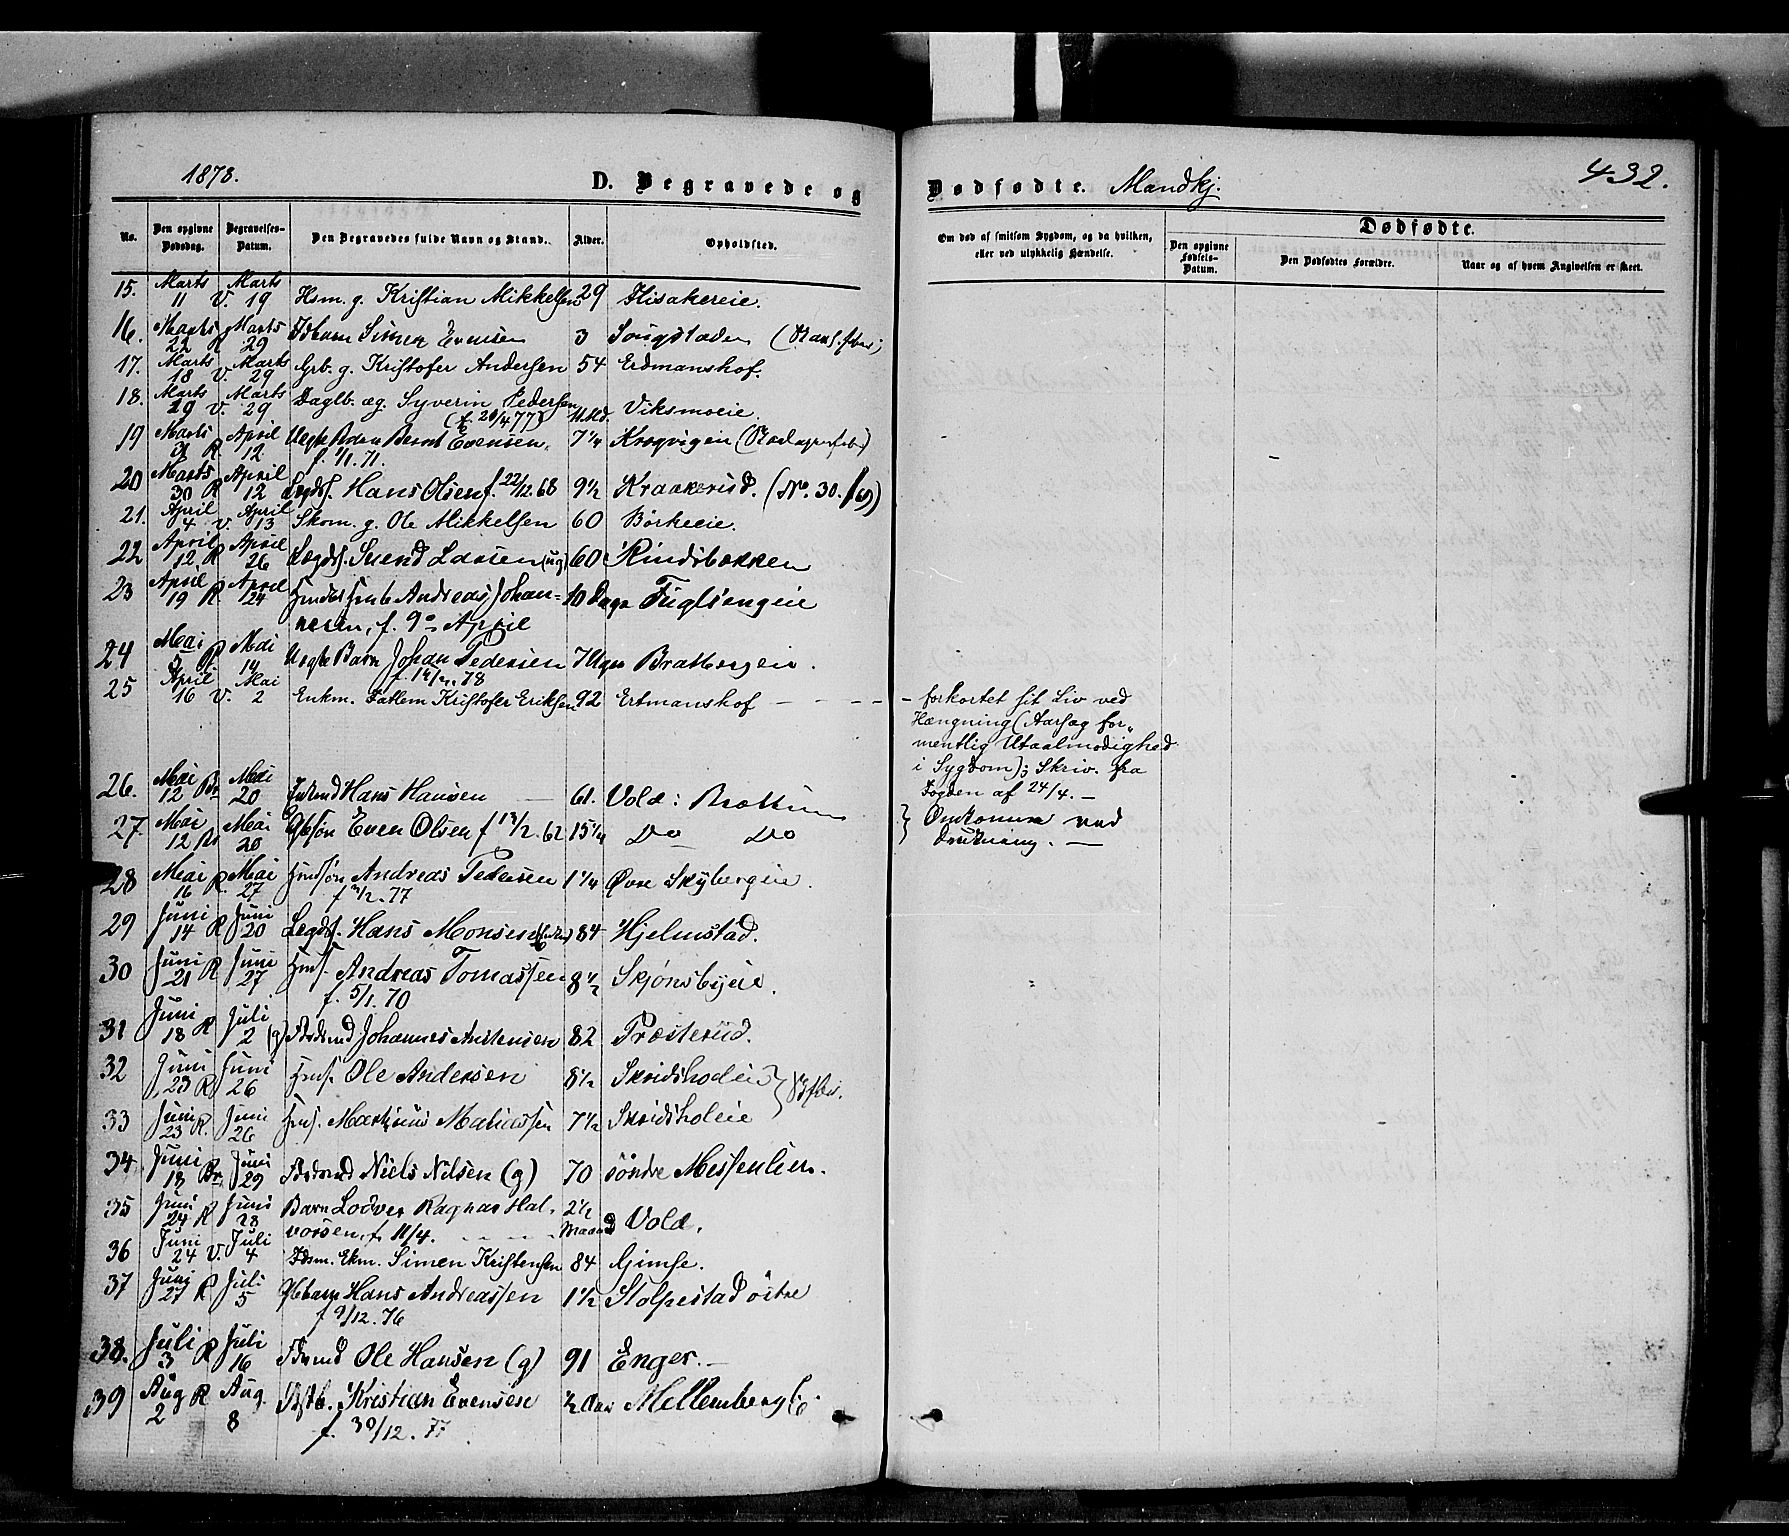 1878.
D. Begravede og
Dødfødte. Mandkj.
432.
No.
Den opgivne Dødsdag.
Begravelses-Datum.
Den Begravedes fulde Navn og Stand.
Alder.
Opholdssted.
Om død af smitsom Sygdom, og da hvilken, eller ved ulykkelig Hændelse.
Dødfødte.
Den opgivne Fødsels-Datum.
Den Dødfødtes Forældre.
Naar og af hvem Angivelsen er skeet.
15. Marts 11 V. Marts 19 Hsm. g. Kristian Mikkelsen 29 Flisakereie.
16. Marts 22 R Marts 29 Simen Evensen 3
17. Marts 18 V. Marts 29 g. Kristofer Andersen 54 Erdmanshof.
18. Marts 19 V. Marts 29 Daglb. æg. Syverin Pedersen Viksmoeie.
(f. 20/4 77)
19 Marts R April 12 Bernt Evensen 7 1/4 Krogvigen
f. 1/1. 71.
20 Marts 30 R April 12 Legdsl. Hans Olsen f. 22/12.68 9 1/2 Kraakerud. (No. 30.
21. April 4 V. April 13 Skom. g. Ole Mikkelsen 60 Børkeeie.
22 April 12 R April 26 Lægdsl. Svend Larsen (ug) 60 Rindsbækken
23 April 19 R. April 24 Andreas Johan-
nesen, f. 9de April 10 Dage Fuglsengeie
24 Mai 5 R Mai 14 Uægte Barn Johan Pedersen 7 Uger Bratbergeie.
25 April 16 V. Mai 2 Enkm. Fattem Kristofer Eriksen 92 Ertmanshof - - - -
- forkortet sit Liv ved
Hængning (Aarsag for-
mentlig Utaalmodighed
i Sygdom); Skriv. fra
Fogden af 24/4. -
26. Mai 12 Br Mai 20 Hans Hansen 61. Vold i Brøttum
27. Mai 12 Br Mai 20 Even Olsen f 13/2. 62 15 1/4 Do Do
} Omkomne ved
Drukning. -
28 Mai 16 R. Mai 27 Andreas Pedersen 1 1/4 Øvre Skybergeie.
29 Juni 14 R Juni 20 Legdsl. Hans Monsen 84 Hjelmstad.
30 Juni 21 R Juni 27 Andreas Tomassen 8 1/2 Skjønsbyeie.
f. 5/1. 70
31 Juni 18 R Juli 2 (g) Johannes Arntensen 82 Præsterud.
32 Juni 23 R Juni 26 Ole Andersen 8 1/2
33 Juni 23 R. Juni 26 Martinius Matiassen 7 1/2
34 Juni 18 Br. Juni 29 Niels Nilsen (g) 70 søndre Messenlien.
35 Juni 24 R Juni 28 Barn Lodver Ragnar Hal-
vorsen, f. 11/4. 2 1/2 Maaned Vold.
36 Juni 24 V. Juli 4 Ekm. Simen Kristensen 84 Gimse.
37 Juni 27 R Juli 5 Hans Andreassen 1 1/2 Stolpestad østre
f 9/12. 76
38. Juli 3 R Juli 16 Ole Hansen (g) 91 Enger.
39 Aug 2 R Aug. 8 Kristian Evensen Mellemberg
f. 30/12. 77